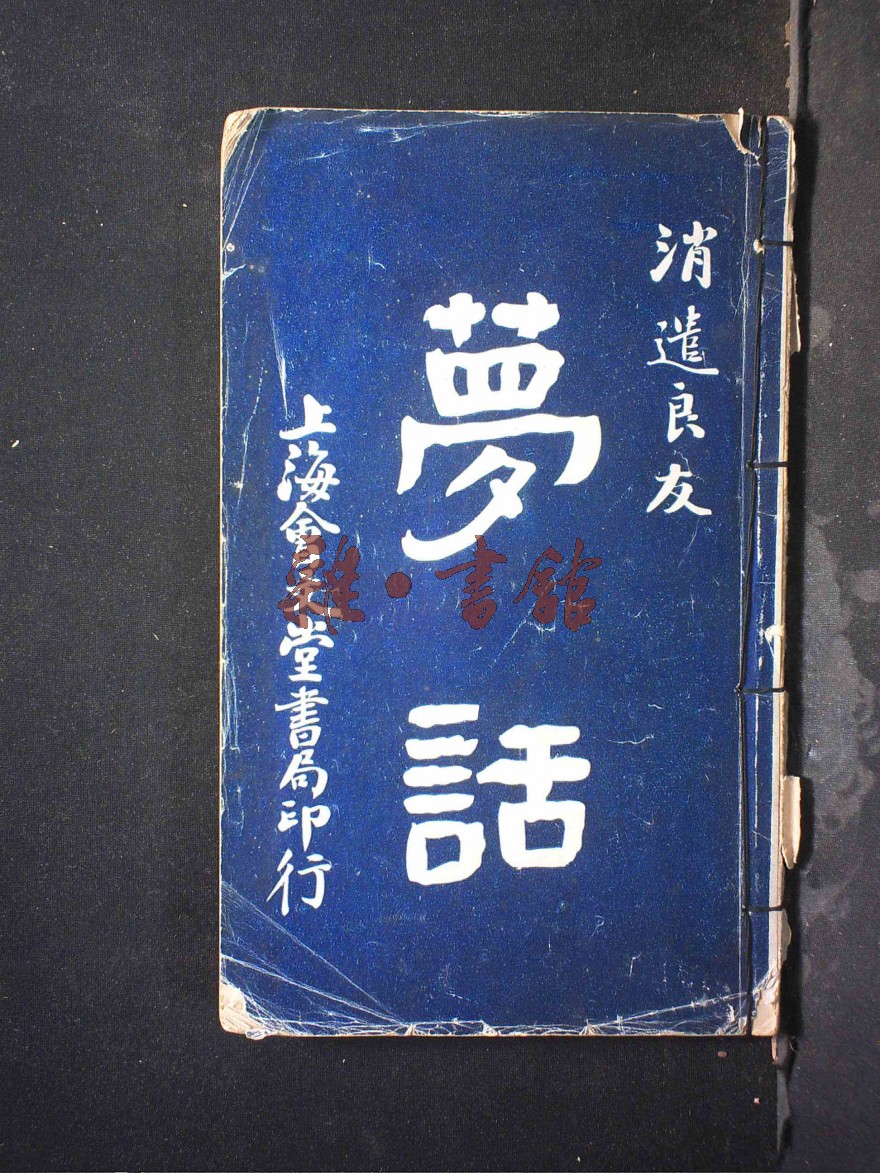 消遣良友
夢話
上海會文堂書局印行
雜·書館